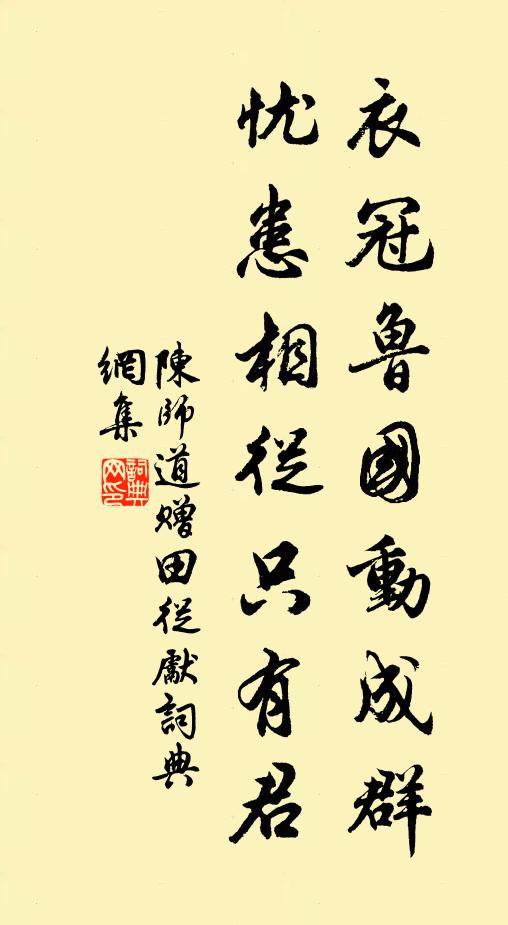 衣冠鲁國動成群
忧患相從只有君
陳師道赠田從獻詞典
網集
詞典
网印